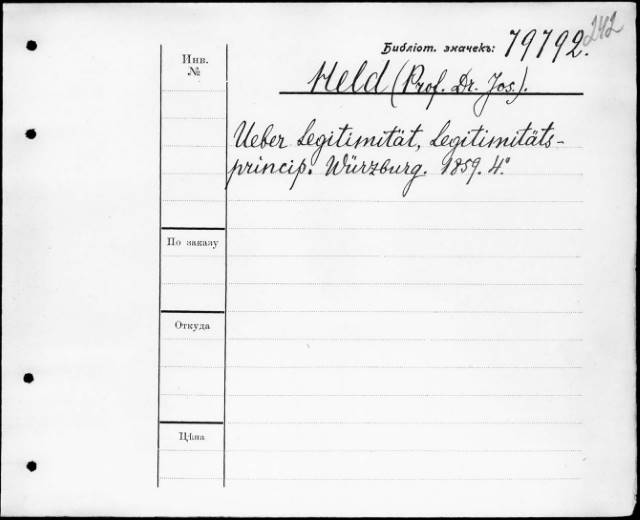 242
Библіот. значекъ: 79792.
Инв.
№
Held (Prof. Dr. Jos.).
Ueber Legitimität, Legitimitäts-
princip. Würzburg. 1859. 4°
По заказу
Откуда
Цѣна